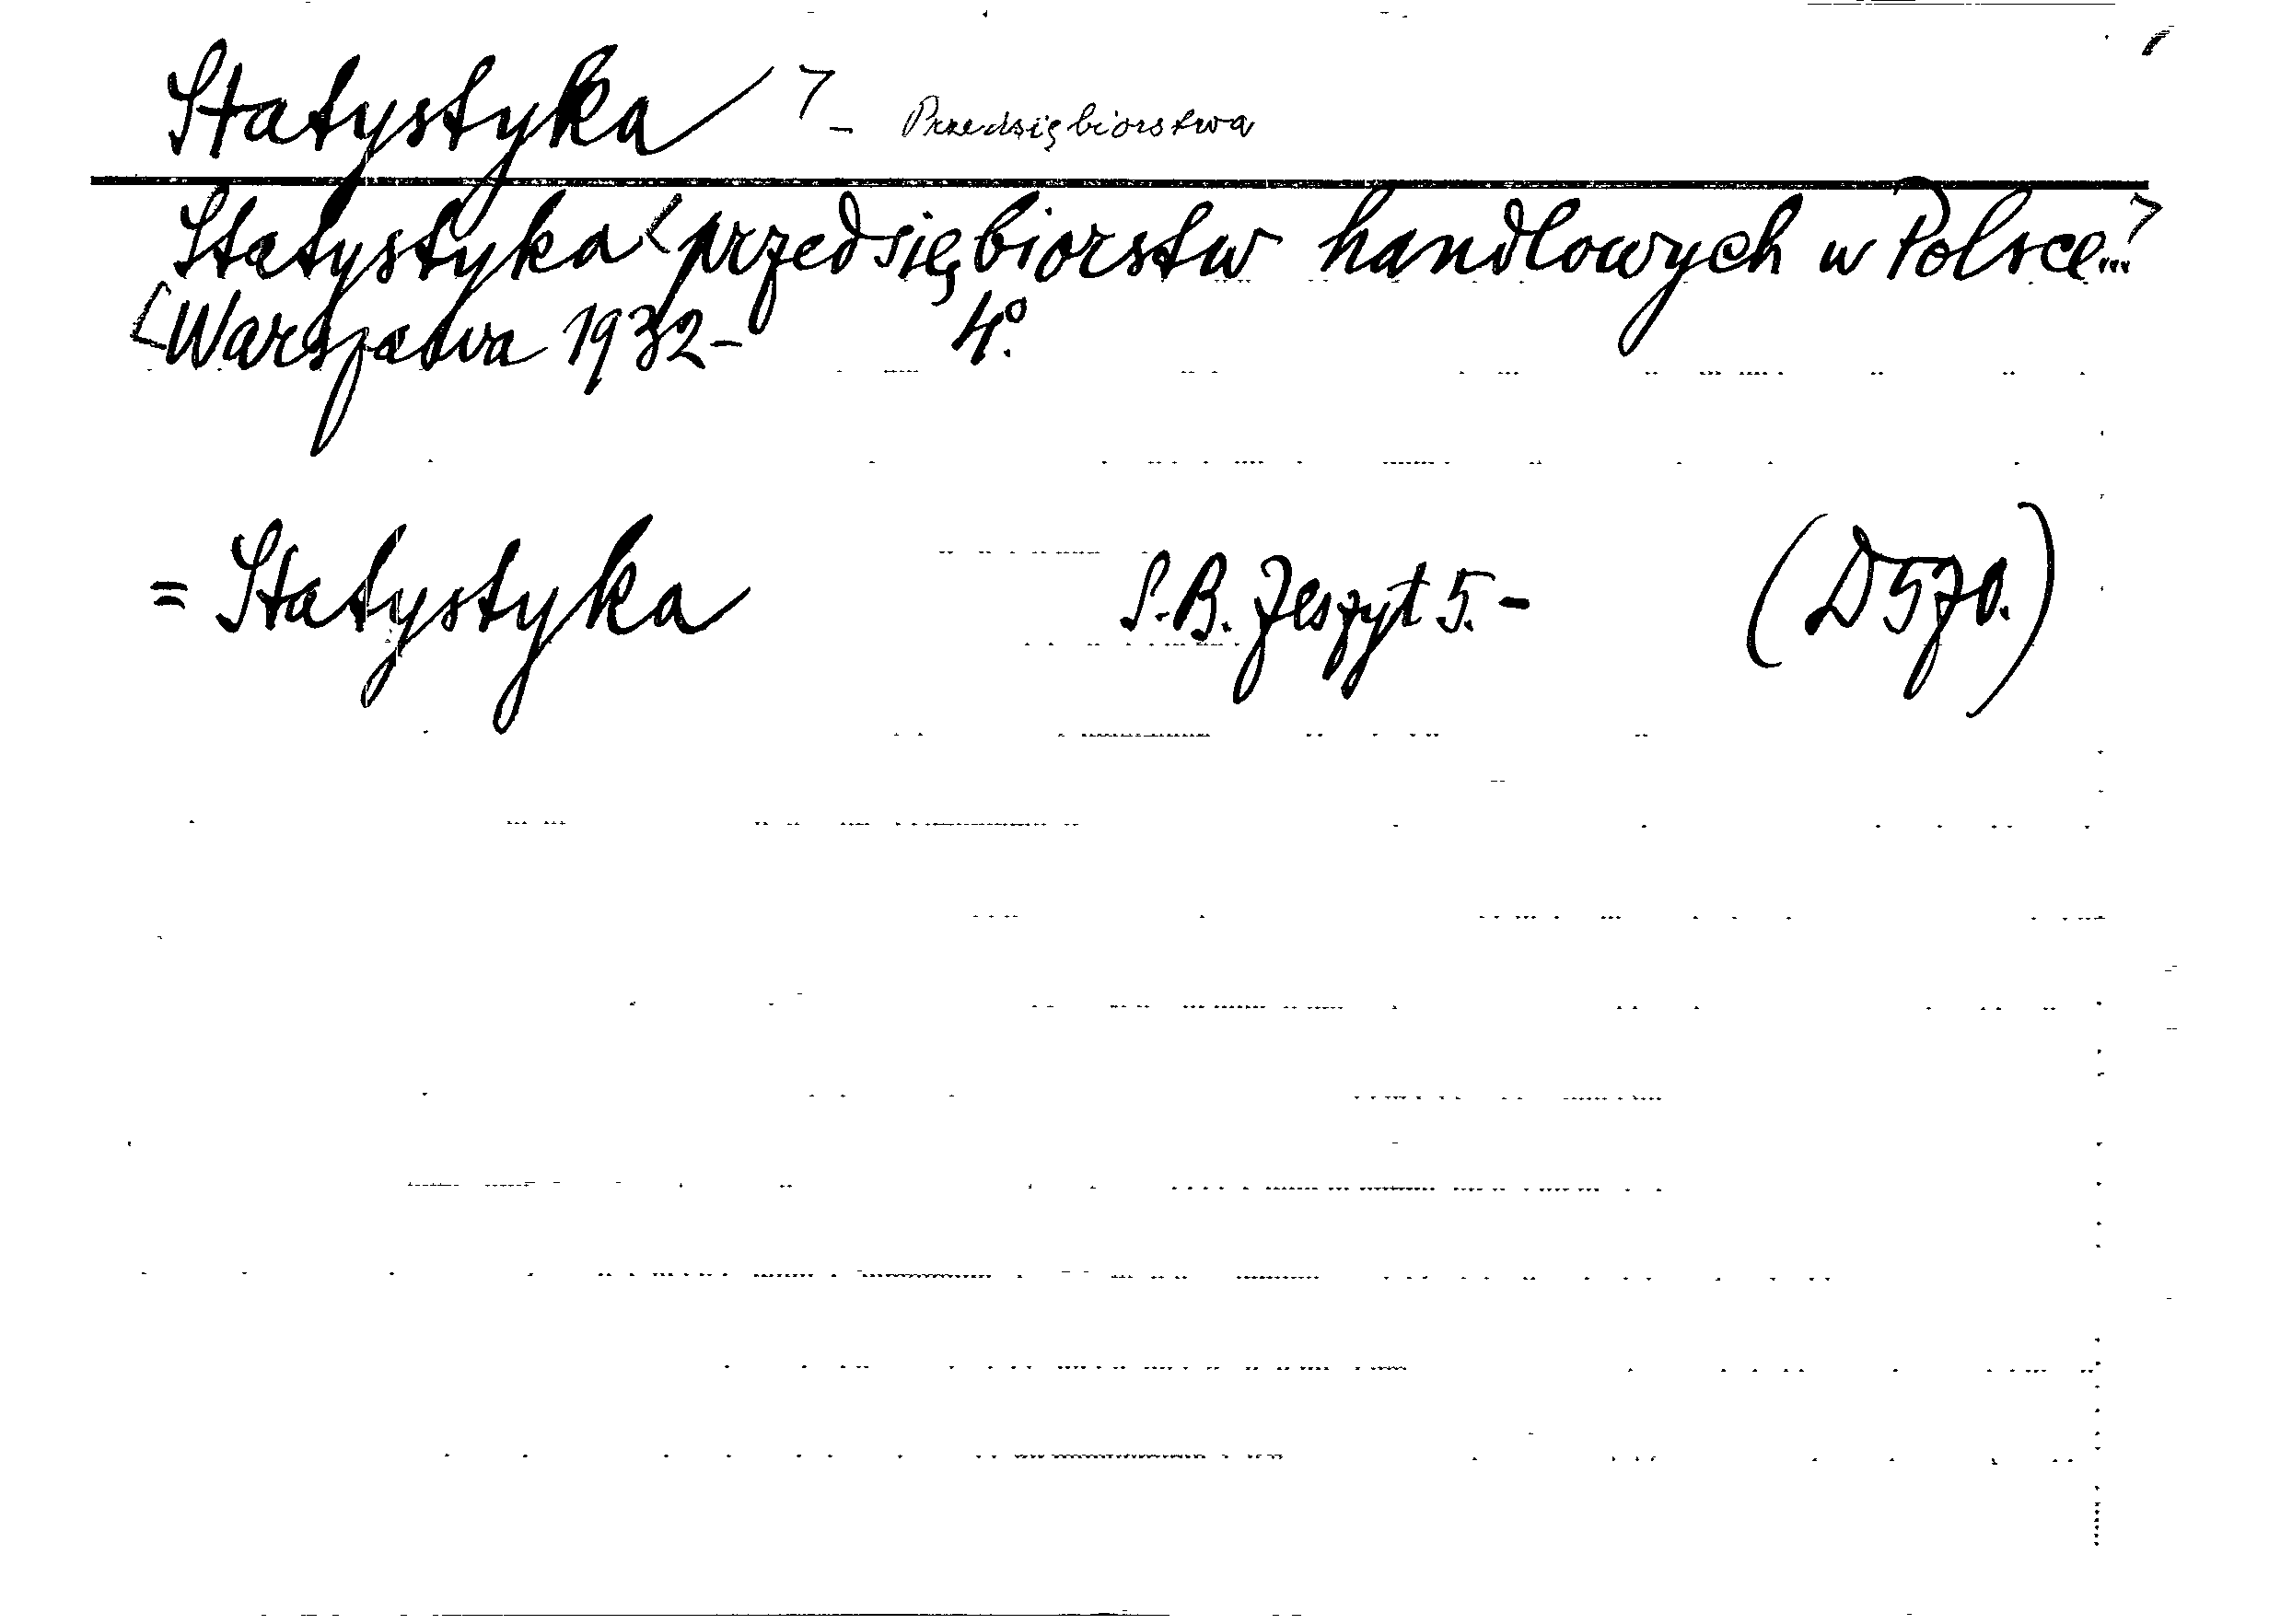 Statystyka > - Przedsiębiorstwa
Statystyka <przedsiębiorstw handlowych w Polsce...>
[Warszawa 1932- 4º.
= Statystyka S.B. Zeszyt 5.- (D570.)